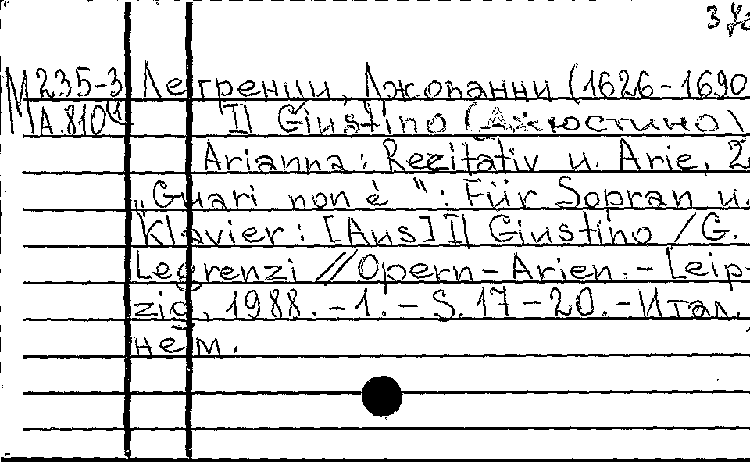 М 235-3 Легренци, Джованни (1626-1690
А.810 Il Giustino (Джюстино)
Arianna: Rezitativ u. Arie, 2
„Guari non è “: Für Sopran u.
Klavier: [Aus] Il Giustino / G.
Legrenzi // Opern-Arien. - Leip-
zig, 1988. - 1. - S. 17-20. - Итал.,
нем.